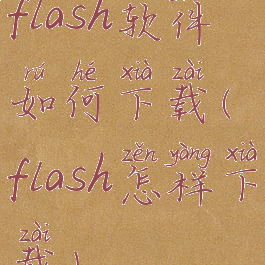 flash软件
rú hé xià zài
如何下载(
zěn yàng xià
flash怎样下
zài
载)